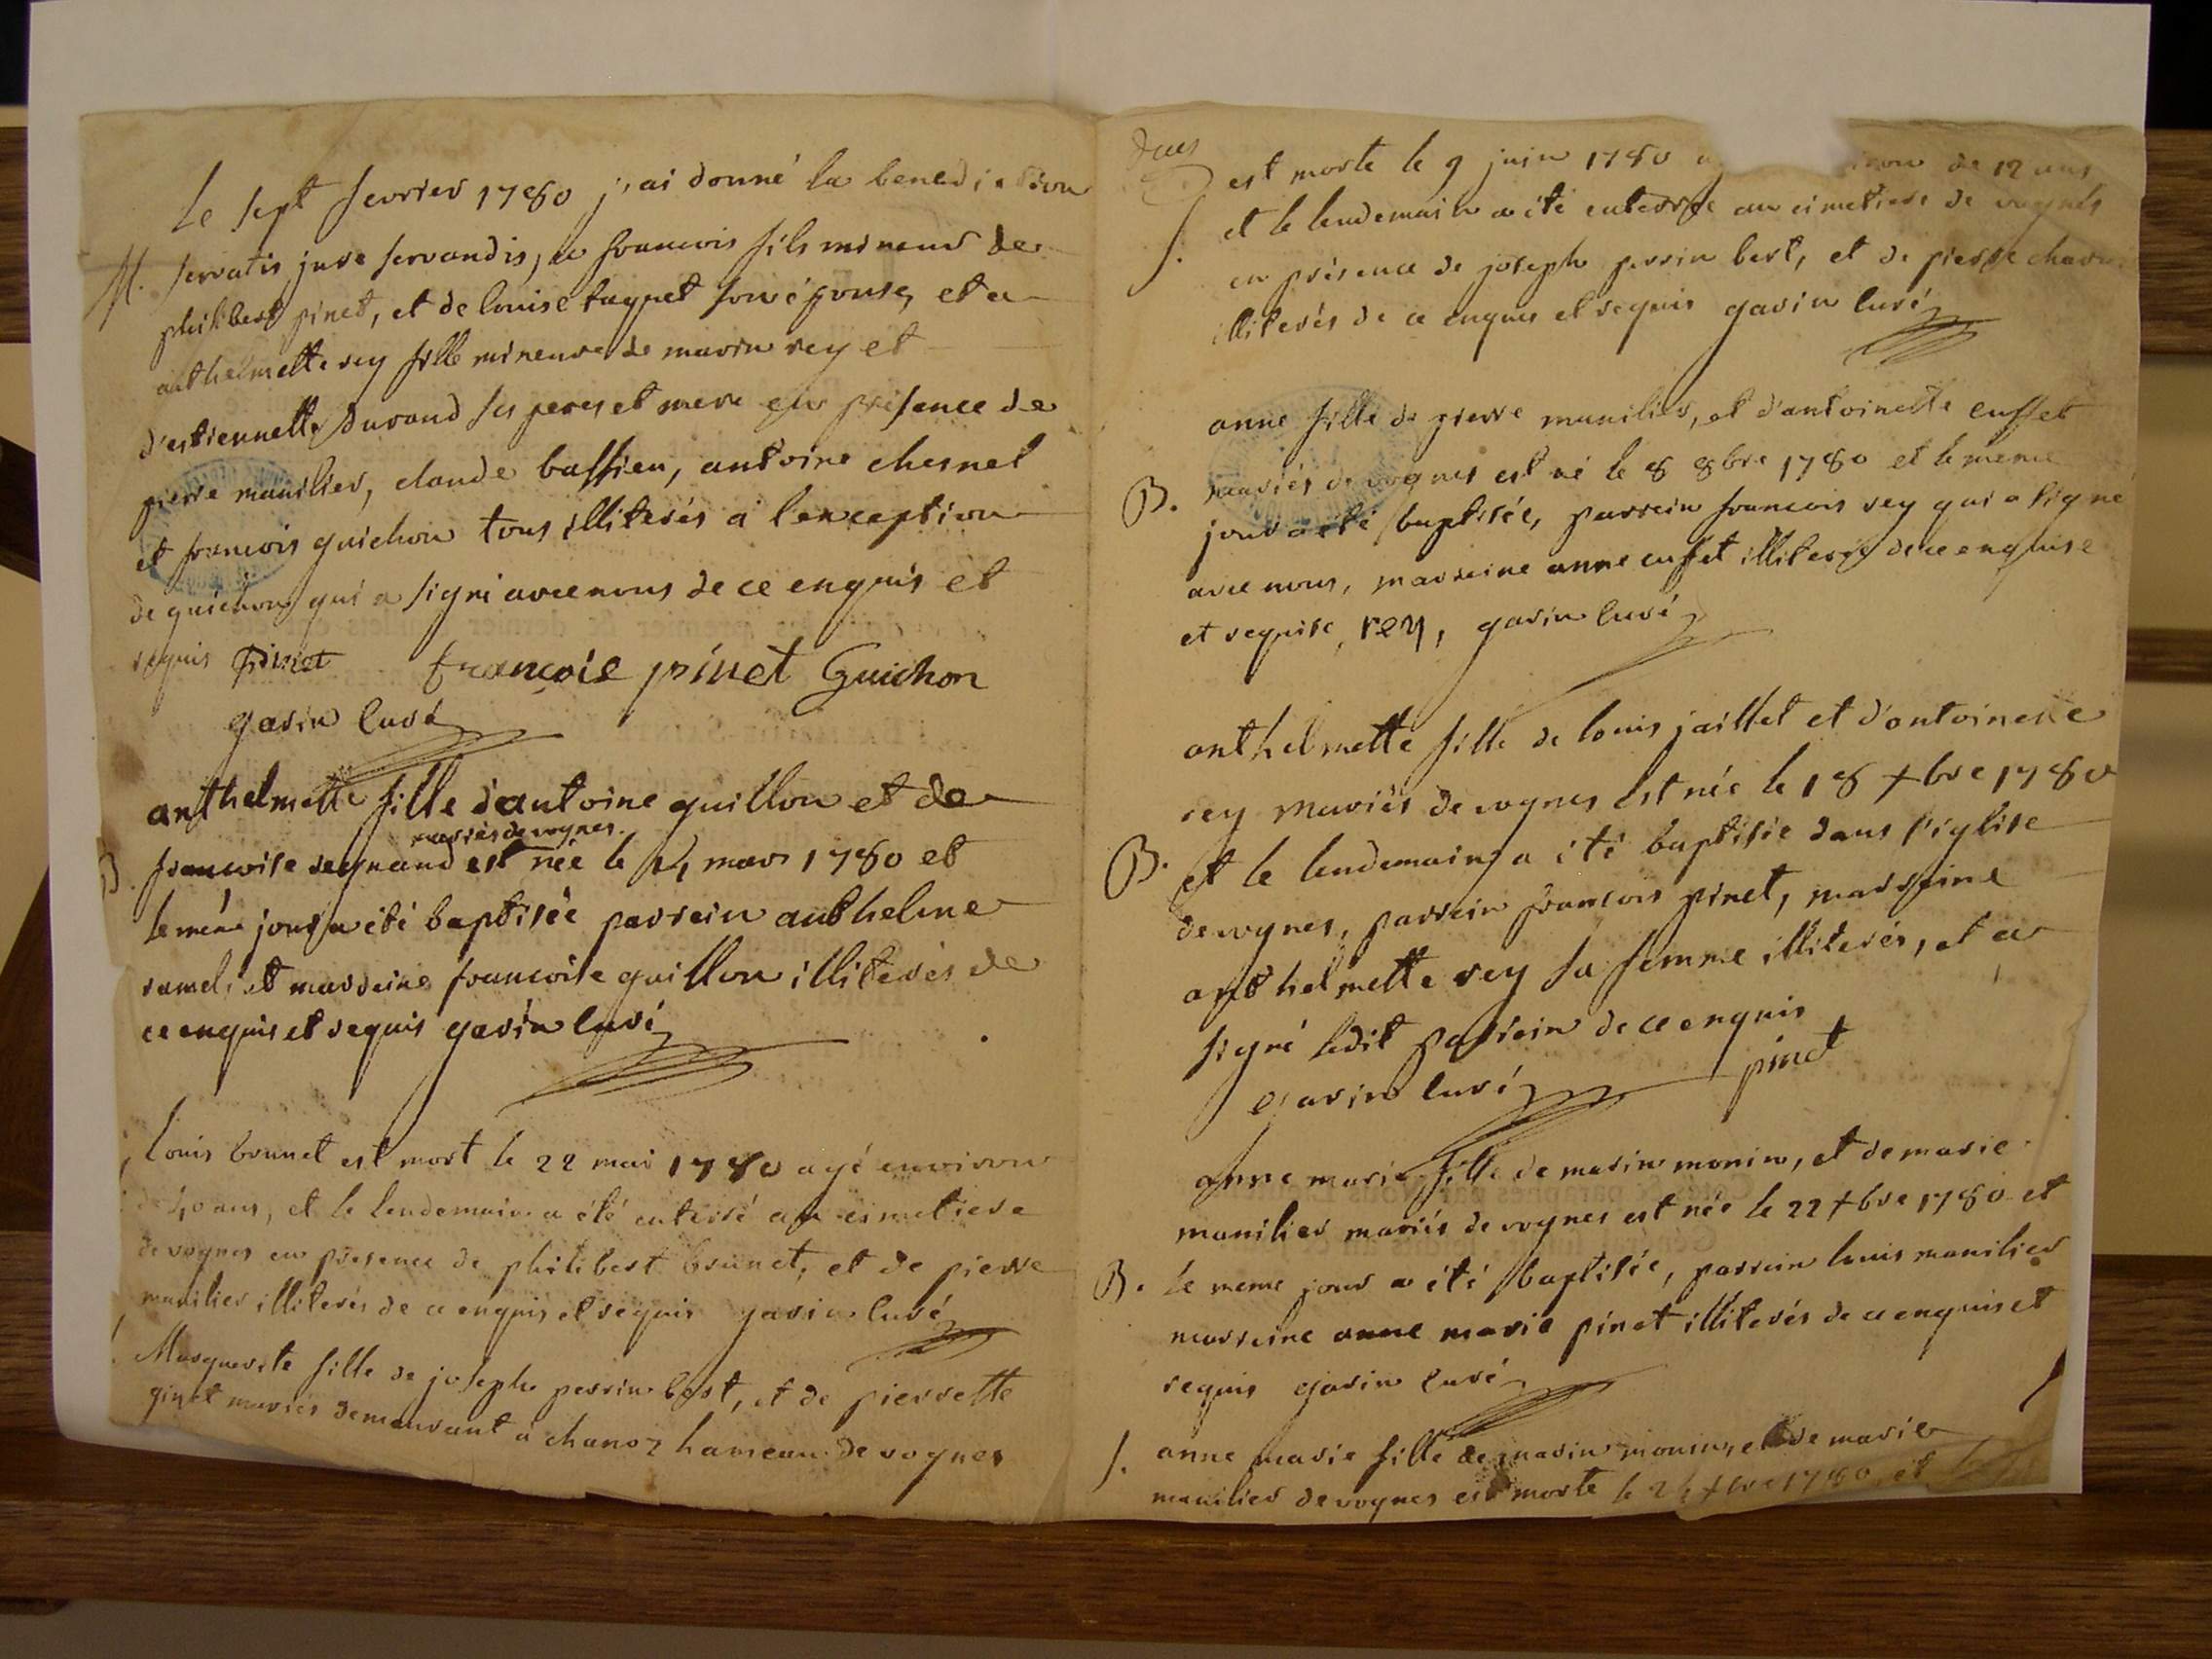 Le sept fevrier 1780 j'ai donné la benediction
M. servatis jure servandis, a francois fils mineur de
philibert pinet, et de louise taquet son épouse, et a
anthelmette rey fille mineure de marin rey et
d'estiennette Durand ses peres et mere en présence de
pierre manilier, claude bassieu, antoine chesnel
et francois guichon tous illiterés a l'exception
de guichon qui a signé avec nous de ce enquis et
requis pinet françois pinet Guichon
garin curé
anthelmette fille d'antoine guillon et de
mariés de vognes
B. francoise reynand est née le 14 mars 1780 et
le même jour a été baptisée parrein anthelme
ramel et marreine francoise guillon illiterés de
ce enquis et requis garin curé
Louis brunet est mort le 22 mai 1780 agé environ
de 40 ans, et le lendemain a été enterré au cimetiere
de vognes en presence de philibert brunet, et de pierre
manilier illiterés de ce enquis et requis garin curé
Marguerite fille de joseph perrin bert, et de pierrette
pinet mariés demeurant a chanoz hameau de vognes
est morte le 9 juin 1780 de 12 ans
et le lendemain a été enterrée au cimetiere de vognes
S. en présence de joseph perrin bert, et de pierre
illiterés de ce enquis et requis garin curé
anne fille de pierre manilier, et d'antoinette cusset
B. mariés de vognes est né le 8 8bre 1780 et le meme
jour a été baptisée, parrein francois rey qui a signé
avec nous, marreine anne cusset illiterée de ce enquise
et requise, rey, garin curé
anthelmette fille de louis jaillet et d'antoinette
rey mariés de vognes est née le 18 xbre 1780
B. et le lendemain a été baptisée dans l'église
de vognes, parrein francois pinet, marreine
anthelmette rey sa femme illiterés, et a
signé ledit parrein de ce enquis
garin curé pinet
anne marie fille de marin monin, et de marie
manilier mariés de vognes est née le 22 xbre 1780 et
B. le meme jour a été baptisée, parrein louis manilier
marreine anne marie pinet illiterés de ce enquis et
requis garin curé
S. anne marie fille de marin monin, et de marie
manilier de vognes est morte le 24 xbre 1780, et